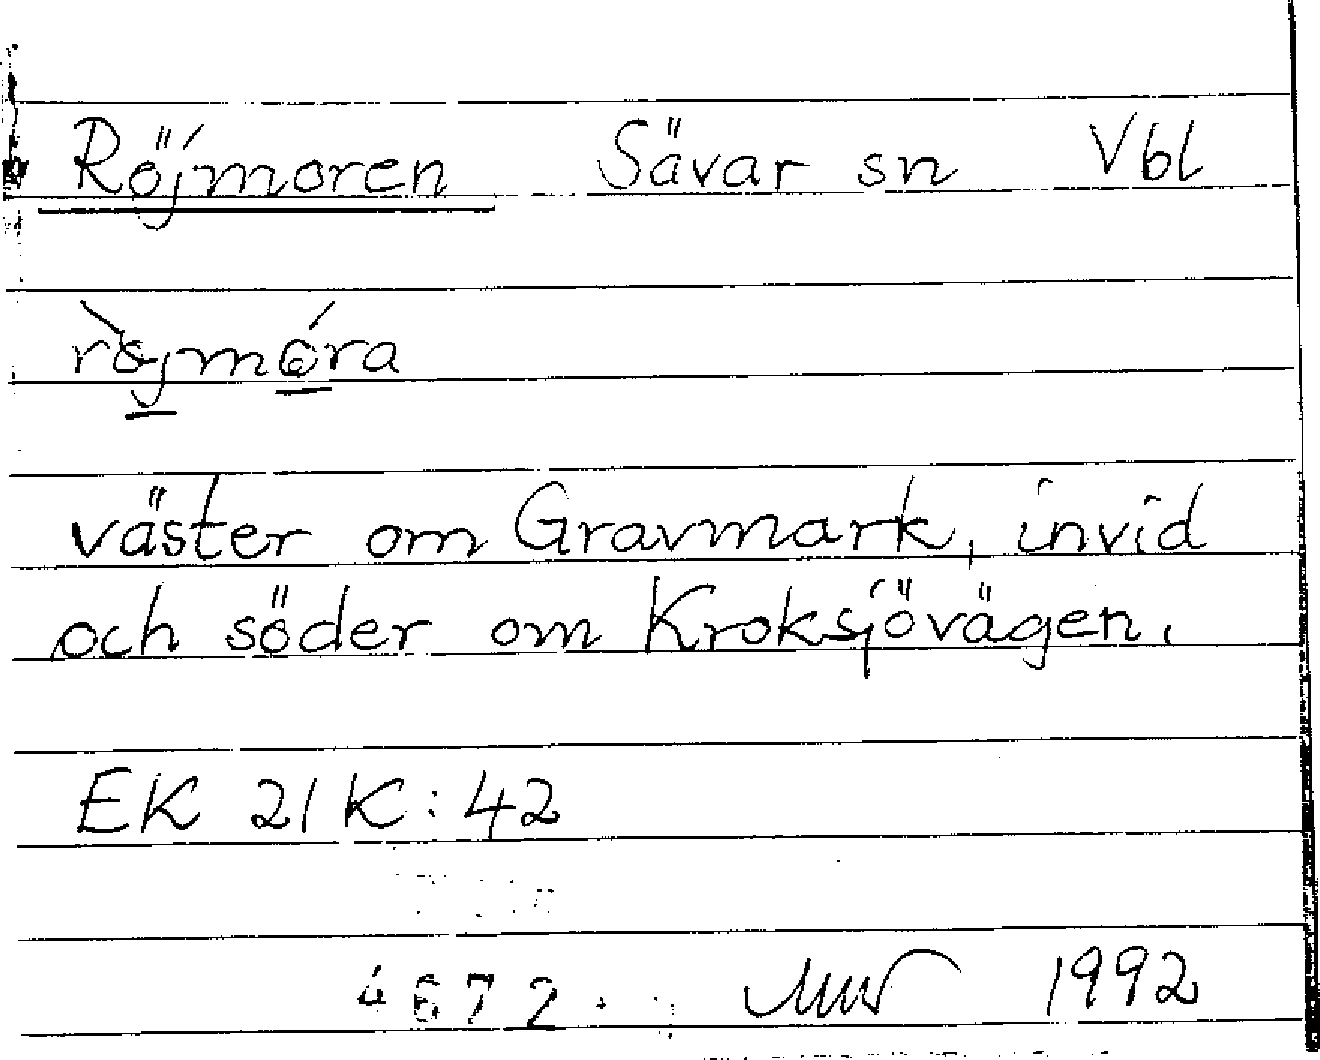 Röjmoren Sävar sn Vbl
röjmóra
väster om Gravmark, invid
och söder om Kroksjövägen.
EK 21K:42
4672
1992